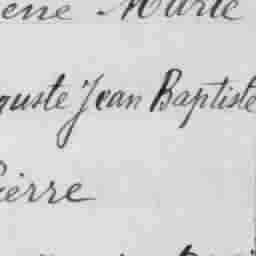 ene Marie
guste Jean Baptiste
ierre